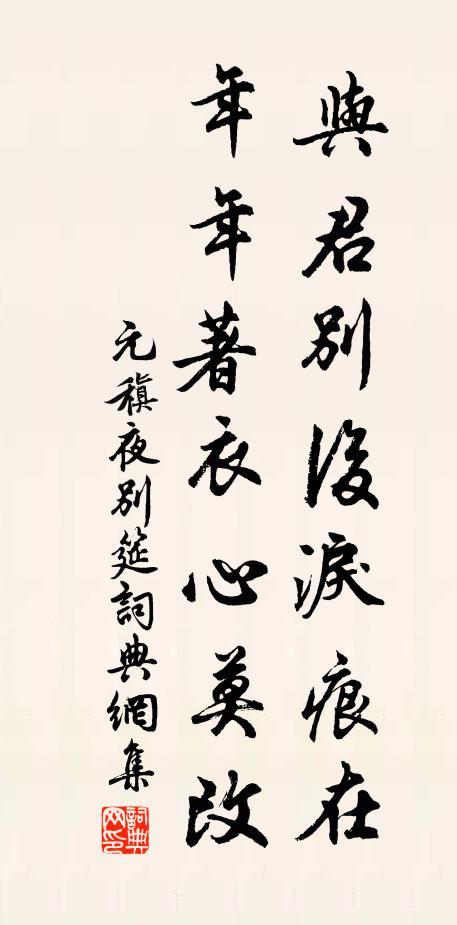 與君別後淚痕在
年年著衣心莫改
元稹夜別筵詞典網集
詞典
网印